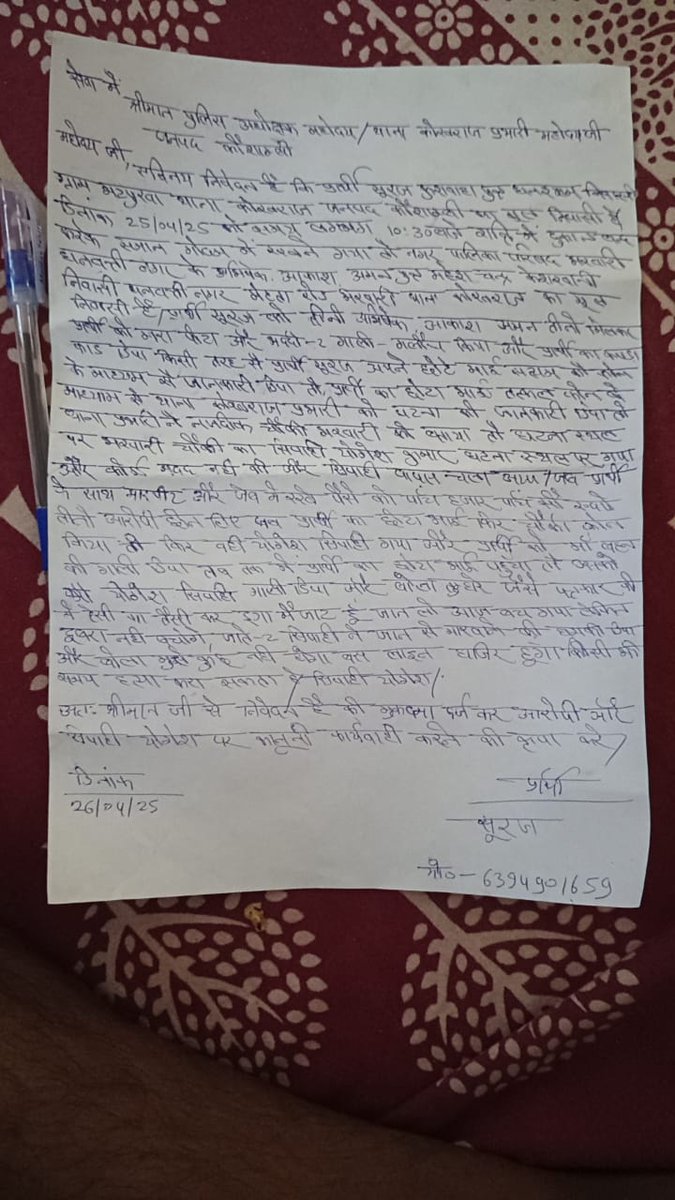 सेवा में
श्रीमान पुलिस अधीक्षक महोदय / थाना कोखराज प्रभारी महोदय जी
जनपद कौशाम्बी
महोदय जी, सविनय निवेदन है कि प्रार्थी सूरज कुशवाहा पुत्र
ग्राम थाना कोखराज जनपद कौशाम्बी का मूल निवासी है
दिनांक 25/04/25 को समय लगभग 10:30 बजे रात्रि में दुकान बन्द
करके सामान गोदाम में रखने गया तो नगर पालिका परिषद भरवारी
धनवन्ती नगर के अभिषेक, आकाश, अमन पुत्र महेश चन्द्र केशरवानी
निवासी धनवन्ती नगर रोड भरवारी थाना कोखराज का मूल
निवासी है / प्रार्थी सूरज को तीनो अभिषेक आकाश अमन तीनो मिलकर
प्रार्थी को मारा पीटा और भद्दी-2 गाली-गलौज किया और प्रार्थी का कपडा
फाड दिया किसी तरह से प्रार्थी सूरज अपने छोटे भाई को फोन
के माध्यम से जानकारी दिया तो प्रार्थी का छोटा भाई तत्काल फोन के
माध्यम से थाना कोखराज प्रभारी को घटना की जानकारी दिया तो
थाना प्रभारी ने नजदीक चौकी भरवारी को बताया तो घटना स्थल
पर भरवारी चौकी का सिपाही योगेश कुमार घटना स्थल पर गया
और कोई मदद नही की और सिपाही वापस चला आया / जब प्रार्थी
के साथ मारपीट और जेब में रखे पैसे को पाँच हजार पाँच सौ रूपये
तीनो आरोपी छीन लिए जब प्रार्थी का छोटा भाई फिर चौकी फोन
किया तो फिर वही योगेश सिपाही गया और प्रार्थी को माँ बहन
की गाली दिया तब तक में प्रार्थी का छोटा भाई पहुँचा तो उसको
भी योगेश सिपाही गाली दिया और बोला तुम्हारे जैसे पत्रकार की
मै ऐसी की तैसी कर दूंगा मै जाट हूँ जान लो आज बच गया लेकिन
दुबारा नही बचोगे, जाते-2 सिपाही ने जान से मारवाने की धमकी दिया
और बोला मुझे कुछ नही होगा बस लाइन हाजिर हूंगा किसी भी
समय हत्या करा सकता है सिपाही योगेश /
अतः श्रीमान जी से निवेदन है की मुकदमा दर्ज कर आरोपी और
सिपाही योगेश पर कानूनी कार्यवाही करने की कृपा करे /
दिनांक
26/04/25
प्रार्थी
सूरज
मो०- 6394901659